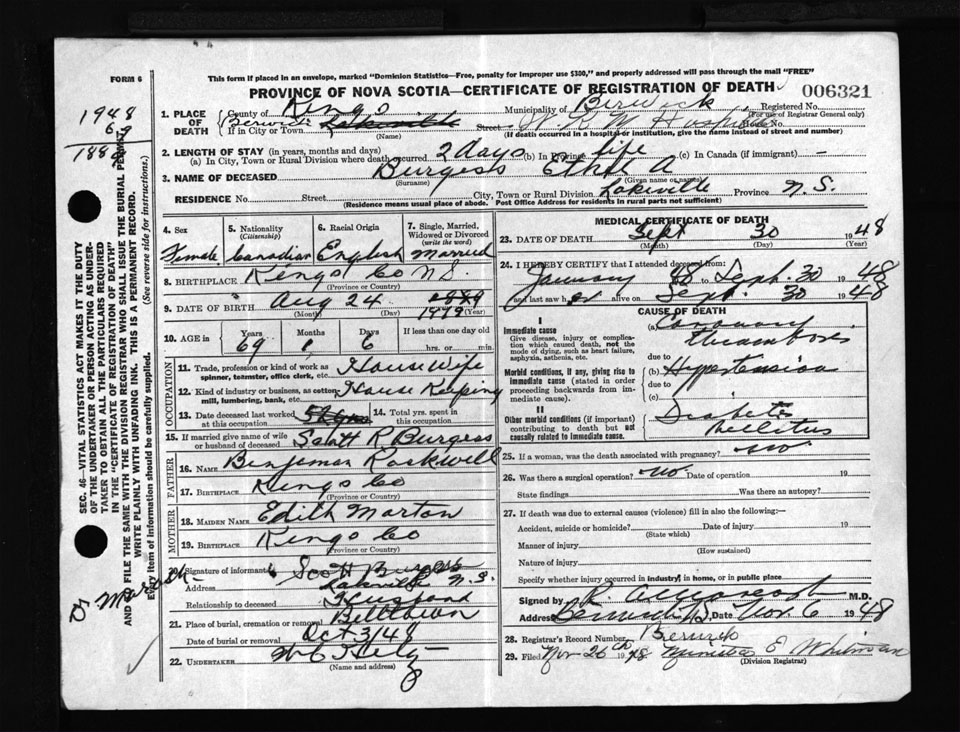 This form if placed in an envelope, marked "Dominion Statistics—Free, penalty for improper use $300," and properly addressed will pass through the mail "FREE"
FORM 6
PROVINCE OF NOVA SCOTIA—CERTIFICATE OF REGISTRATION OF DEATH
006321
1948
69
1. PLACE OF DEATH
County of Kings
Municipality of Berwick Registered No.
(For use of Registrar General only)
If in City or Town Berwick Lakeville Street W. K. M. Hospital
(Name) (If death occurred in a hospital or institution, give the name instead of street and number)
2. LENGTH OF STAY (in years, months and days)
(a) In City, Town or Rural Division where death occurred 2 days (b) In Province life (c) In Canada (if immigrant) —
3. NAME OF DECEASED Burgess Ethel A
(Surname) (Given name or names)
RESIDENCE No. Street City, Town or Rural Division Lakeville Province N. S.
(Residence means usual place of abode. Post Office Address for residents in rural parts not sufficient)
4. Sex
Female
5. Nationality
(Citizenship)
Canadian
6. Racial Origin
English
7. Single, Married, Widowed or Divorced
(write the word)
Married
8. BIRTHPLACE Kings Co N.S.
(Province or Country)
9. DATE OF BIRTH Aug 24 1879
(Month) (Day) (Year)
10. AGE in
Years Months Days
69 1 6
If less than one day old
hrs. or min.
OCCUPATION
11. Trade, profession or kind of work as spinner, teamster, office clerk, etc. House Wife
12. Kind of industry or business, as cotton mill, lumbering, bank, etc. House Keeping
13. Date deceased last worked at this occupation
14. Total yrs. spent in this occupation
15. If married give name of wife or husband of deceased Scott R Burgess
FATHER
16. NAME Benjeman Rockwell
17. BIRTHPLACE Kings Co
(Province or Country)
MOTHER
18. MAIDEN NAME Edith Morton
19. BIRTHPLACE Kings Co
(Province or Country)
20. Signature of informant Scott Burgess
Address Lakeville N. S.
Relationship to deceased Husband
21. Place of burial, cremation or removal Billtown
Date of burial or removal Oct 3/48
22. UNDERTAKER
(Name and address)
MEDICAL CERTIFICATE OF DEATH
23. DATE OF DEATH Sept 30 1948
(Month) (Day) (Year)
24. I HEREBY CERTIFY that I attended deceased from:
January 48 to Sept. 30 1948
and last saw her alive on Sept. 30 1948
CAUSE OF DEATH
I
Immediate cause
Give disease, injury or complication which caused death, not the mode of dying, such as heart failure, asphyxia, asthenia, etc.
(a) Coronary thrombosis
due to
Morbid conditions, if any, giving rise to immediate cause (stated in order proceeding backwards from immediate cause).
(b) Hypertension
due to
(c)
II
Other morbid conditions (if important) contributing to death but not causally related to immediate cause.
Diabetes Mellitus
25. If a woman, was the death associated with pregnancy? no
26. Was there a surgical operation? no Date of operation 19
State findings Was there an autopsy?
27. If death was due to external causes (violence) fill in also the following:—
Accident, suicide or homicide? Date of injury 19
(State which)
Manner of injury
(How sustained)
Nature of injury
Specify whether injury occurred in industry, in home, or in public place
Signed by M.D.
Address Date Nov. 6 1948
28. Registrar's Record Number Berwick
29. Filed Nov 26th 1948 E Whitman
(Division Registrar)
SEC. 46—VITAL STATISTICS ACT MAKES IT THE DUTY
OF THE UNDERTAKER OR PERSON ACTING AS UNDER-
TAKER TO OBTAIN ALL THE PARTICULARS REQUIRED
IN THE "CERTIFICATE OF REGISTRATION OF DEATH"
AND FILE THE SAME WITH THE DIVISION REGISTRAR WHO SHALL ISSUE THE BURIAL PERMIT.
WRITE PLAINLY WITH UNFADING INK. THIS IS A PERMANENT RECORD.
Every item of information should be carefully supplied. (See reverse side for instructions.)